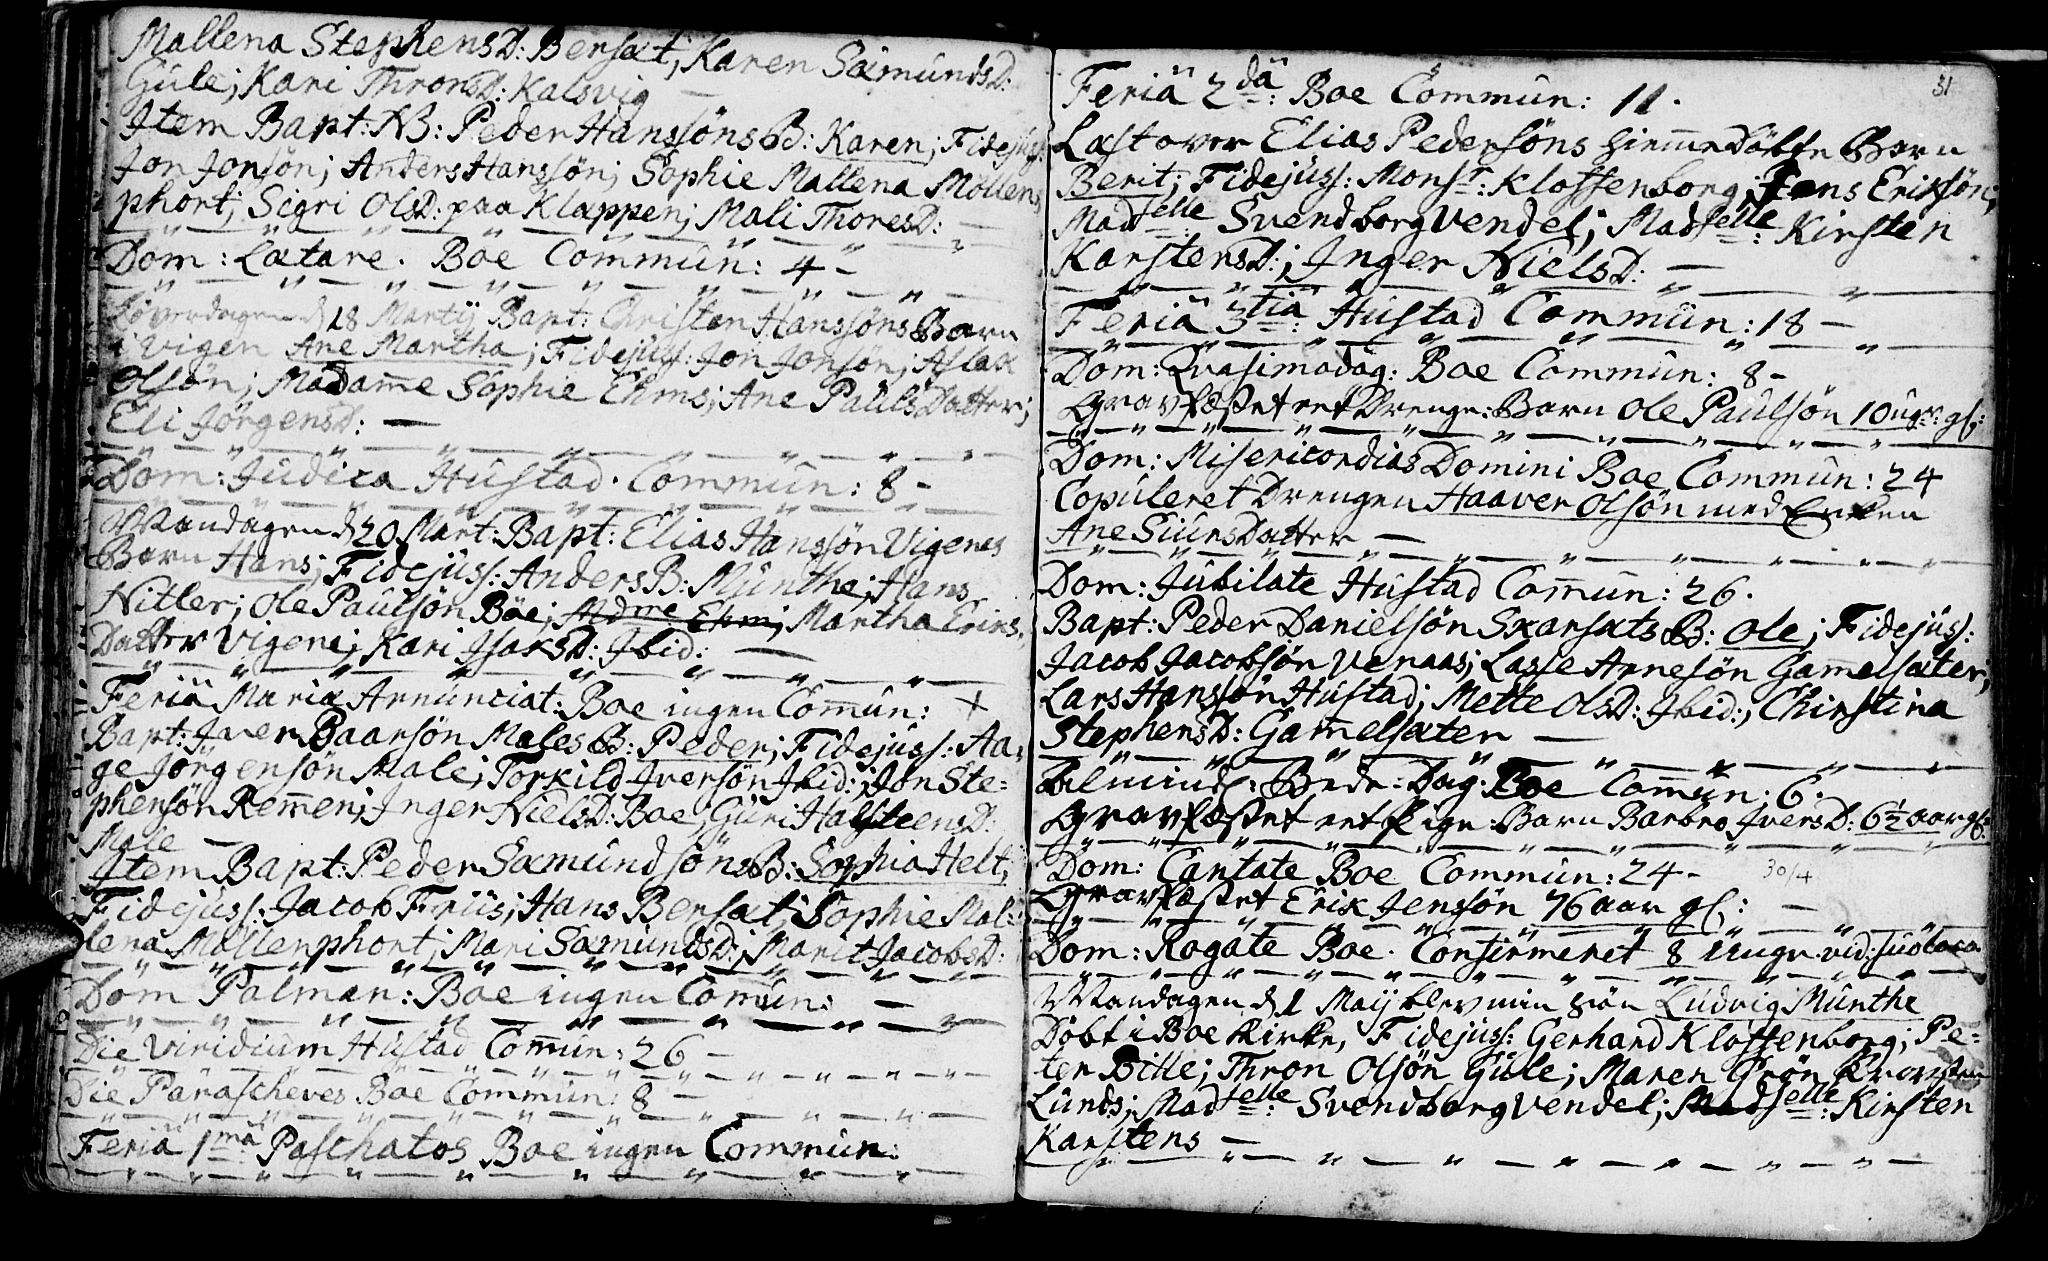 Mallena StephensD: Bersæt; Karen SæmundsD:
Gule; Kari ThronsD: Kalsvig —
Item Bapt: NB: Peder Hanssöns B: Karen; Fidejuss:
Jon Jonsön; Anders Hanssön; Sophie Mallena Möllen,
phort; Sigri OlsD: paa Klappen; Mali ThoresD: —
Dom: Lætare. Boe Commun: 4 –
Löverdagen d 18 Martij Bapt: Christen Hanssöns Barn
i vigen Ane Martha; Fidejuss: Jon Jonsön; Aslak
Olsön; Madame Sophie Ehms; Ane Pauls Datter;
Eli JörgensD: —
Dom: Judica Hustad. Commun: 8 –
Mandagen d 20 Mart: Bapt: Elias Hanssön Vigenes
Barn Hans; Fidejuss: Anders B: Munthe; Hans
Nitter; Ole Paulsön Böe; Madme Ehm; Martha Erics,
Datter Vigene; Kari IsaksD: Ibid: —
Feriâ Mariæ Annunciat: Boe ingen Comun: +
Bapt: Iver Baarsön Males B: Peder; Fidejuss: Aa,
ge Jörgensön Male; Torkild Iversön Ibid:; Jon Ste=
phensön Remen; Inger NielsD: Boe; Guri HalsteensD:
Male —
Item Bapt: Peder Sæmundsöns B: Sophia Helt;
Fidejuss: Jacob Friis; Hans Bersæt; Sophie Mal:
lena Möllenphort; Mari SæmundsD:; Marit JacobsD:
Dom Palmar: Boe ingen Comun: —
Die Viridium Hustad Comun: 26 –
Die Parascheves Boe Commun: 8 –
Feriâ 1mâ Paschatos Boe ingen Commun:
31
Feriâ 2dâ: Boe Commun: 11.
Læst over Elias Pedersöns hiemmedöbte Barn
Berit; Fidejuss: Monsr: Klossenborg; Jens Eriksön;
Madselle: Svendborg Vendel; Madselle: Kirsten
KarstensD:; Inger NielsD: —
Feriâ 3tiâ: Hustad Commun: 18 –
Dom: Qvasimodog: Boe Commun: 8 –
Gravfæstet et Drenge-Barn Ole Paulsön 10 ugr: gl:
Dom: Misericordias Domini Boe Commun: 24
Copuleret Drengen Haaver Olsön med Enken
Ane Siurs Datter —
Dom: Jubilate Hustad Comun: 26.
Bapt: Peder Danielsön Skarsæts B: Ole; Fidejuss:
Jacob Jacobsön Venaas; Lasse Arnesön Gamelsæter;
Lars Hanssön Hustad; Mette OlsD: Ibid:; Chirstina
StephensD: Gamelsæter —
Almind: Bede-Dag: Boe Comun: 6.
Gravfæstet et Pige-Barn Barbro IversD: 6½ aar gl:
Dom: Cantate Boe Commun: 24 – 30/4
Gravfæstet Erik Jenssön 76 aar gl: —
Dom: Rogate Boe. Confirmeret 8 unge vid: suo loco
Mandagen d 1 Maij blev min sön Ludvig Munthe
Döbt i Boe Kirke, Fidejuss: Gerhard Klossenborg; Pe=
ter Ditle; Thron Olsön Gule; Maren Grön
Lunds; Madselle: Svendborg Vendel; Madselle: Kirsten
Karstens —